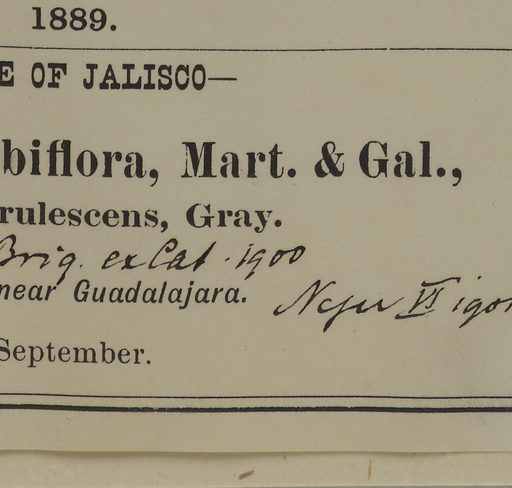 1889.
E OF JALISCO—
biflora, Mart. & Gal.,
rulescens, Gray.
Briq. ex Cat. 1900
near Guadalajara.
VI 190
September.